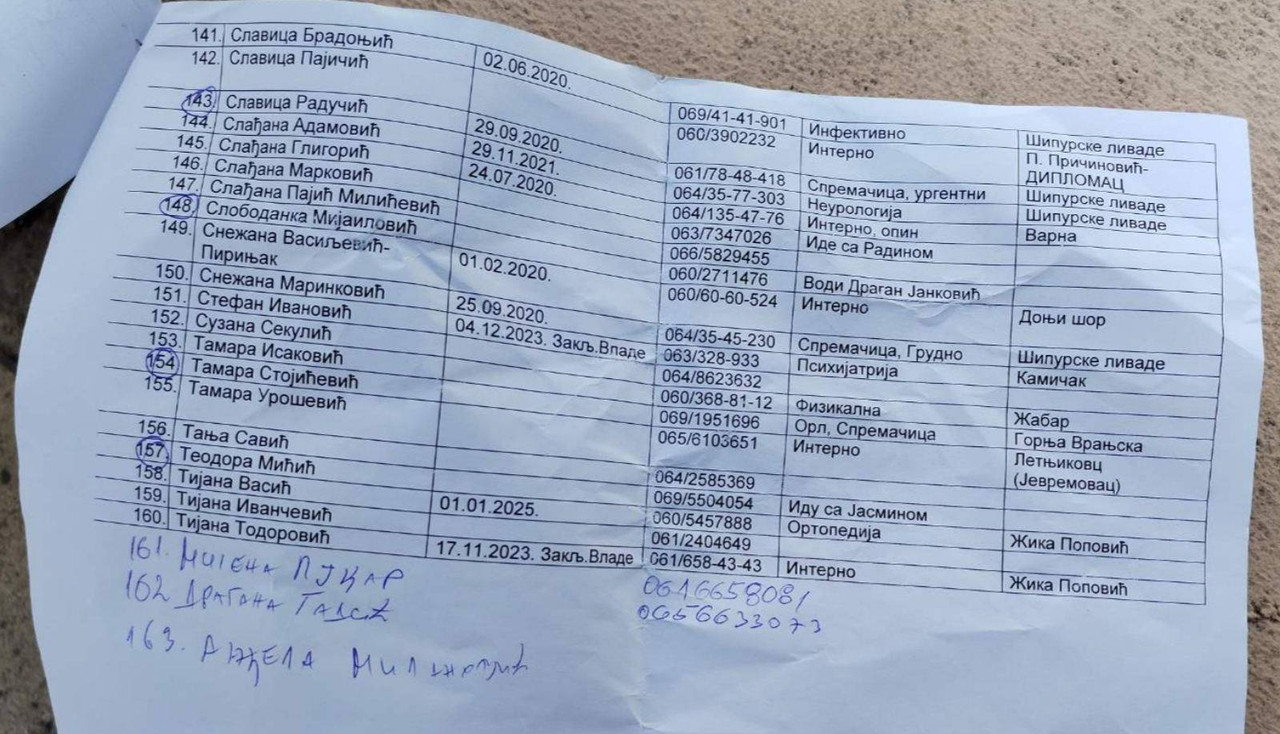 141. Славица Брадоњић 069/41-41-901 Инфективно Шипурске ливаде
142. Славица Пајичић 02.06.2020. 060/3902232 Интерно П. Причиновић-
ДИПЛОМАЦ
143. Славица Радучић 29.09.2020. 061/78-48-418 Спремачица, ургентни Шипурске ливаде
144. Слађана Адамовић 29.11.2021. 064/35-77-303 Неурологија Шипурске ливаде
145. Слађана Глигорић 24.07.2020. 064/135-47-76 Интерно, опин Варна
146. Слађана Марковић 063/7347026 Иде са Радином
147. Слађана Пајић Милићевић 066/5829455
148. Слободанка Мијаиловић 060/2711476 Води Драган Јанковић
149. Снежана Васиљевић- 01.02.2020. 060/60-60-524 Интерно Доњи шор
Пирињак
150. Снежана Маринковић 25.09.2020. 064/35-45-230 Спремачица, Грудно Шипурске ливаде
151. Стефан Ивановић 04.12.2023. Закљ.Владе 063/328-933 Психијатрија Камичак
152. Сузана Секулић 064/8623632
153. Тамара Исаковић 060/368-81-12 Физикална Жабар
154. Тамара Стојићевић 069/1951696 Орл, Спремачица Горња Врањска
155. Тамара Урошевић 065/6103651 Интерно Летњиковц
(Јевремовац)
156. Тања Савић 064/2585369
157. Теодора Мићић 069/5504054 Иду са Јасмином
158. Тијана Васић 01.01.2025. 060/5457888 Ортопедија Жика Поповић
159. Тијана Иванчевић 061/2404649
160. Тијана Тодоровић 17.11.2023. Закљ.Владе 061/658-43-43 Интерно Жика Поповић
161. Милена 0616658081
162 Драгана 0656633073
163. Анђела